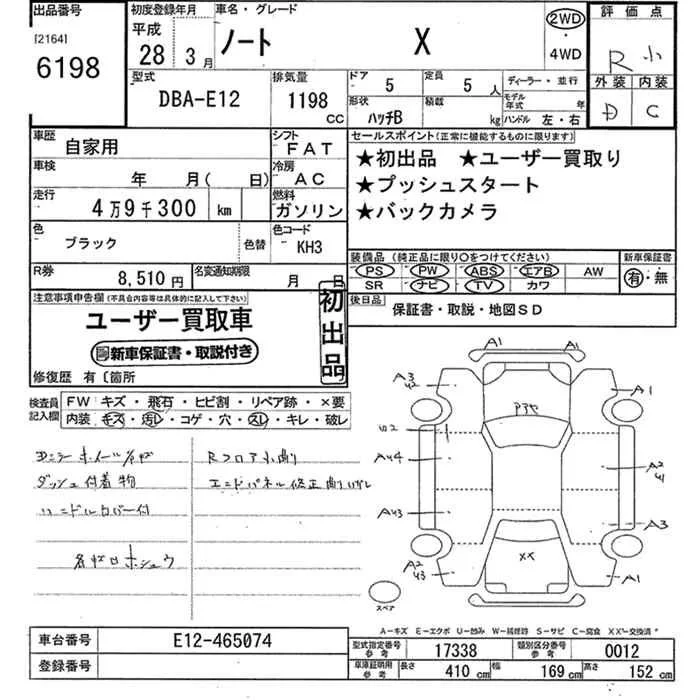 出品番号
[2164]
6198
初度登録年月
平成
28 3月
車名・グレード
ノート X
2WD
・
4WD
評価点
R 小
外装 内装
D C
型式
DBA-E12
排気量
1198
CC
ドア
5
定員
5 人
形状
ハッチB
積載
kg
ディーラー・並行
モデル年式 年
ハンドル 左・右
車歴
自家用
シフト
FAT
車検
年 月( 日)
冷房
AC
走行
4万9千300 km
燃料
ガソリン
色
ブラック
色替
色コード
KH3
R券
8,510円
名変通知期限
月 日
セールスポイント(正常に機能するものに限ります)
★初出品 ★ユーザー買取り
★プッシュスタート
★バックカメラ
装備品(純正品に限り○をつけてください)
PS PW ABS エアB AW
SR ナビ TV カワ
新車保証書
有・無
後日品
保証書・取説・地図SD
注意事項申告欄(不具合内容等は具体的に記入して下さい)
ユーザー買取車
新車保証書・取説付き
初出品
修復歴 有〔箇所
検査員記入欄
FW キズ・飛石・ヒビ割・リペア跡・×要
内装 キズ・汚レ・コゲ・穴・スレ・キレ・破レ
ダッシュ付着物
ハンドルカバー付
Rフロア小曲り
エンドパネル修正曲り
A1 A1
A3
A2
A1
アヤ
A44
A2
41
A43
A3
XX
A2
43
A1
スペア
A-キズ E-エクボ U-凹み W-補修跡 S-サビ C-腐食 XX-交換済
車台番号
E12-465074
登録番号
型式指定番号
参考
17338
類別区分番号
参考
0012
車庫証明用
参考
長さ
410 cm
幅
169 cm
高さ
152 cm